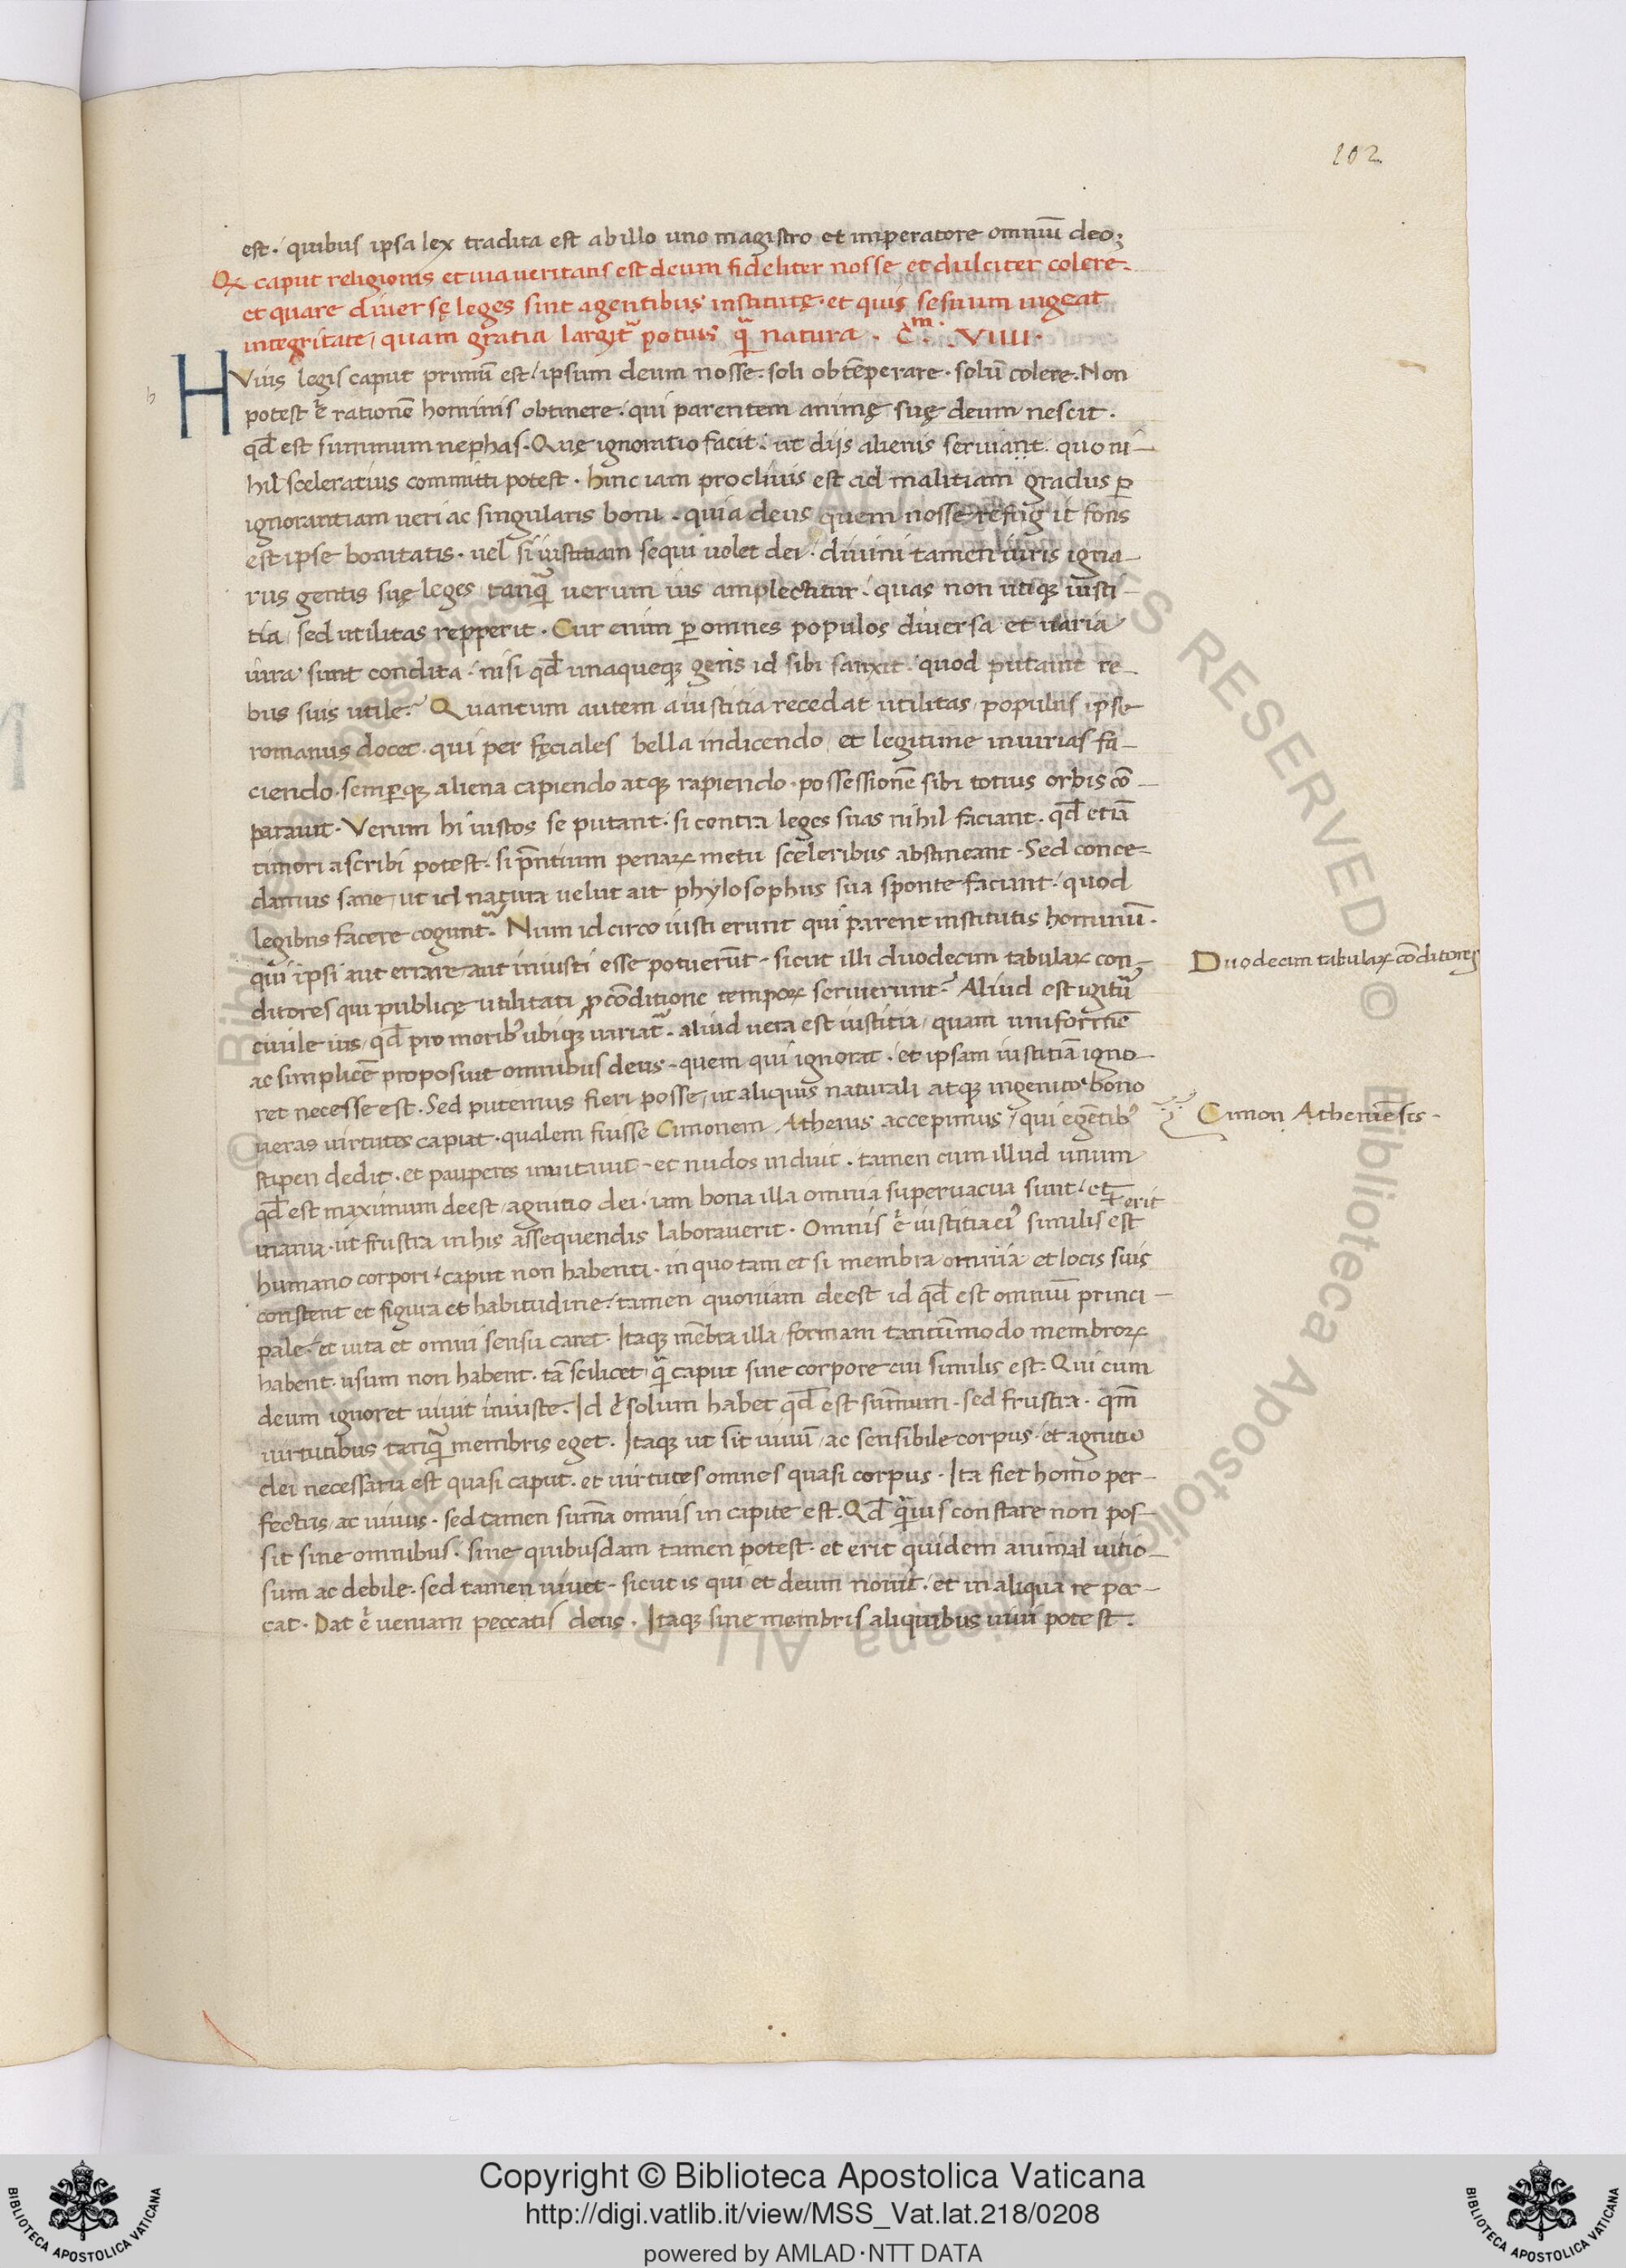 102
est. quibus ipsa lex tradita est ab illo uno magistro et imperatore omniū deo;
Qꝫ caput religionis et uia ueritatis est deum fideliter nosse et dulciter colere.
et quare diuersę leges sint a gentibus institutę. et quis sesuum uigeat
integritate, quam gratia largit᷑ potius q̃ natura. C.m VIIII.
HVius legis caput primū est, ipsum deum nosse. soli obtēperare. solū colere. Non
potest .n. rationē hominis obtinere. qui parentem animę suę deum nescit.
qd̄ est summum nephas. Quę ignoratio facit. ut diis alienis seruiant. quo ni-
hil sceleratius committi potest. hinc iam procliuis est ad malitiam gradus ꝑ
ignorantiam ueri ac singularis boni. quia deus quem nosse refugit fons
est ipse bonitatis. uel si iustitiam sequi uolet dei. diuini tamen iuris igna-
rus gentis suę leges tanq̃ uerum ius amplectitur. quas non utiqꝫ iusti-
tia, sed utilitas repperit. Cur enim ꝑ omnes populos diuersa et uaria
iura sunt condita. nisi qd̄ unaqueqꝫ gens id sibi sanxit. quod putauit re-
bus suis utile? Quantum autem a iustitia recedat utilitas, populus ipse
romanus docet. qui per fęciales bella indicendo, et legitime iniurias fa-
ciendo. semꝑqꝫ aliena capiendo atqꝫ rapiendo. possessionē sibi totius orbis cō-
parauit. Verum hi iustos se putant. si contra leges suas nihil faciant. qd̄ etiā
timori ascribi potest. si p̄ntium penaꝝ metu sceleribus abstineant. Sed conce-
damus sane, ut id natura uelut ait phylosophus sua sponte faciant. quod
legibus facere cogunt᷑. Num idcirco iusti erunt qui parent institutis hominū.
qui ipsi aut errare aut iniusti esse potuerūt. sicut illi duodecim tabulaꝝ con-
Duodecim tabulaꝝ cōditores
ditores qui publicę utilitati ꝓ cōditione tempoꝝ seruierunt? Aliud est igitu᷑
ciuile ius, qd̄ pro moribꝰ ubiqꝫ uariat᷑. aliud uera est iustitia, quam uniformē
ac simplicē proposuit omnibus deus. quem qui ignorat. et ipsam iustitiā igno-
ret necesse est. Sed putemus fieri posse, ut aliquis naturali atqꝫ ingenito bono
ueras uirtutes capiat. qualem fuisse Cimonem Athenis accepimus, qui egētibꝰ
Cimon Atheniēsis.
stipen dedit. et pauperes inuitauit. et nudos induit. tamen cum illud unum
qd̄ est maximum deest, agnitio dei. iam bona illa omnia superuacua sunt. et
inania. ut frustra in his assequendis laborauerit. Omnis .n. iustitia eiꝰ similis est erit
humano corpori. caput non habenti. in quo tam et si membra omnia et locis suis
constent et figura et habitudine. tamen quoniam deest id qd̄ est omniū princi-
pale. et uita et omni sensu caret. Itaqꝫ mēbra illa formam tantūmodo membroꝝ
habent. usum non habent. tā scilicet q̃ caput sine corpore cui similis est. Qui cum
deum ignoret uiuit iniuste. Id .n. solum habet qd̄ est summum. sed frustra. qm̄
uirtutibus tanq̃ membris eget. Itaqꝫ ut sit uiuū, ac sensibile corpus. et agnitio
dei necessaria est quasi caput. et uirtutes omnes quasi corpus. Ita fiet homo per-
fectus, ac uiuus. sed tamen summa omnis in capite est. Qd̄ q̃uis constare non pos-
sit sine omnibus. sine quibusdam tamen potest. et erit quidem animal uitio-
sum ac debile. sed tamen uiuet. sicut is qui et deum nouit. et in aliqua re pec-
cat. Dat .n. ueniam peccatis deus. Itaqꝫ sine membris aliquibus uiui potest.
Copyright © Biblioteca Apostolica Vaticana
http://digi.vatlib.it/view/MSS_Vat.lat.218/0208
powered by AMLAD·NTT DATA